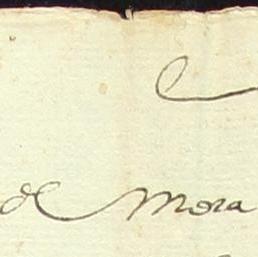 de Mora